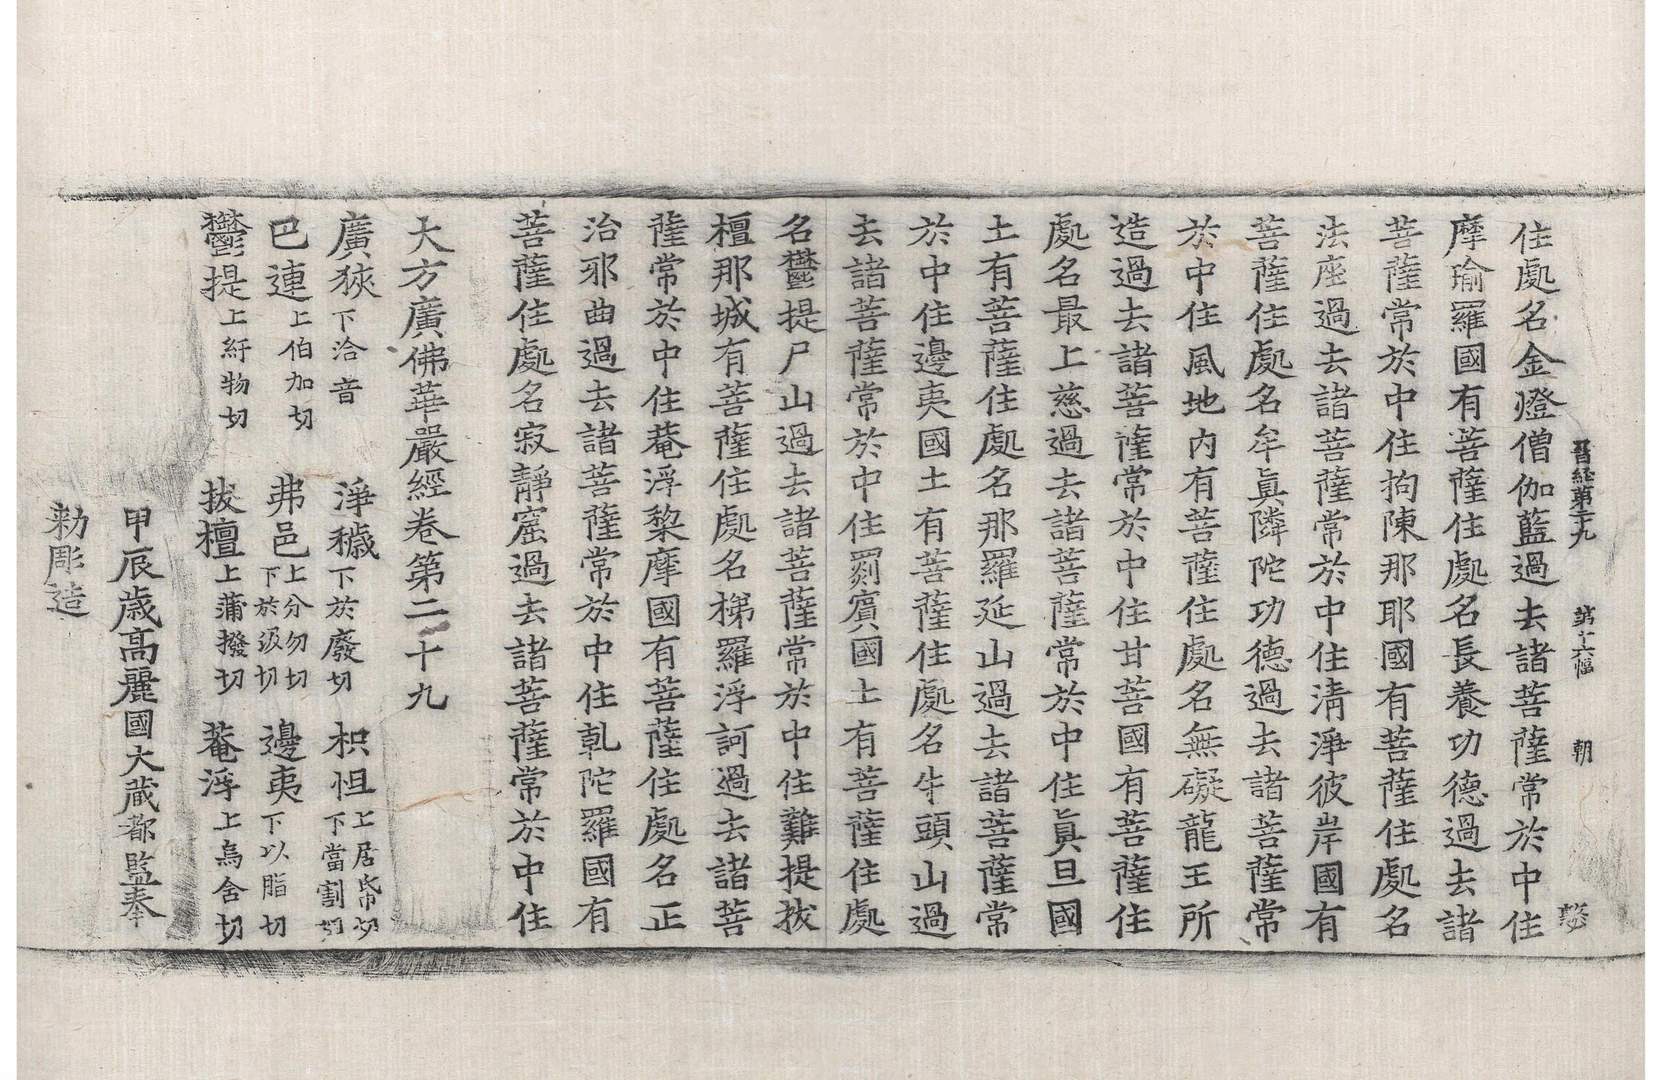 晉經第二十九 第十六幅 朝
住處名金燈僧伽藍過去諸菩薩常於中住
摩瑜羅國有菩薩住處名長養功德過去諸
菩薩常於中住拘陳那耶國有菩薩住處名
法座過去諸菩薩常於中住清淨彼岸國有
菩薩住處名牟眞隣陀功德過去諸菩薩常
於中住風地內有菩薩住處名無礙龍王所
造過去諸菩薩常於中住甘菩國有菩薩住
處名最上慈過去諸菩薩常於中住眞旦國
土有菩薩住處名那羅延山過去諸菩薩常
於中住邊夷國土有菩薩住處名牛頭山過
去諸菩薩常於中住罽賓國土有菩薩住處
名鬱提尸山過去諸菩薩常於中住難提拔
檀那城有菩薩住處名梯羅浮訶過去諸菩
薩常於中住菴浮梨摩國有菩薩住處名正
治邪曲過去諸菩薩常於中住乹陀羅國有
菩薩住處名寂靜窟過去諸菩薩常於中住
大方廣佛華嚴經卷第二十九
廣狹 下洽音 淨穢 下於廢切 枳怛 上居帋切 下當割切
巴連 上伯加切 弗邑 上分勿切 下於汲切 邊夷 下以脂切
鬱提 上紆物切 拔檀 上蒲撥切 菴浮 上烏含切
甲辰歳高麗國大藏都監奉
勅彫造